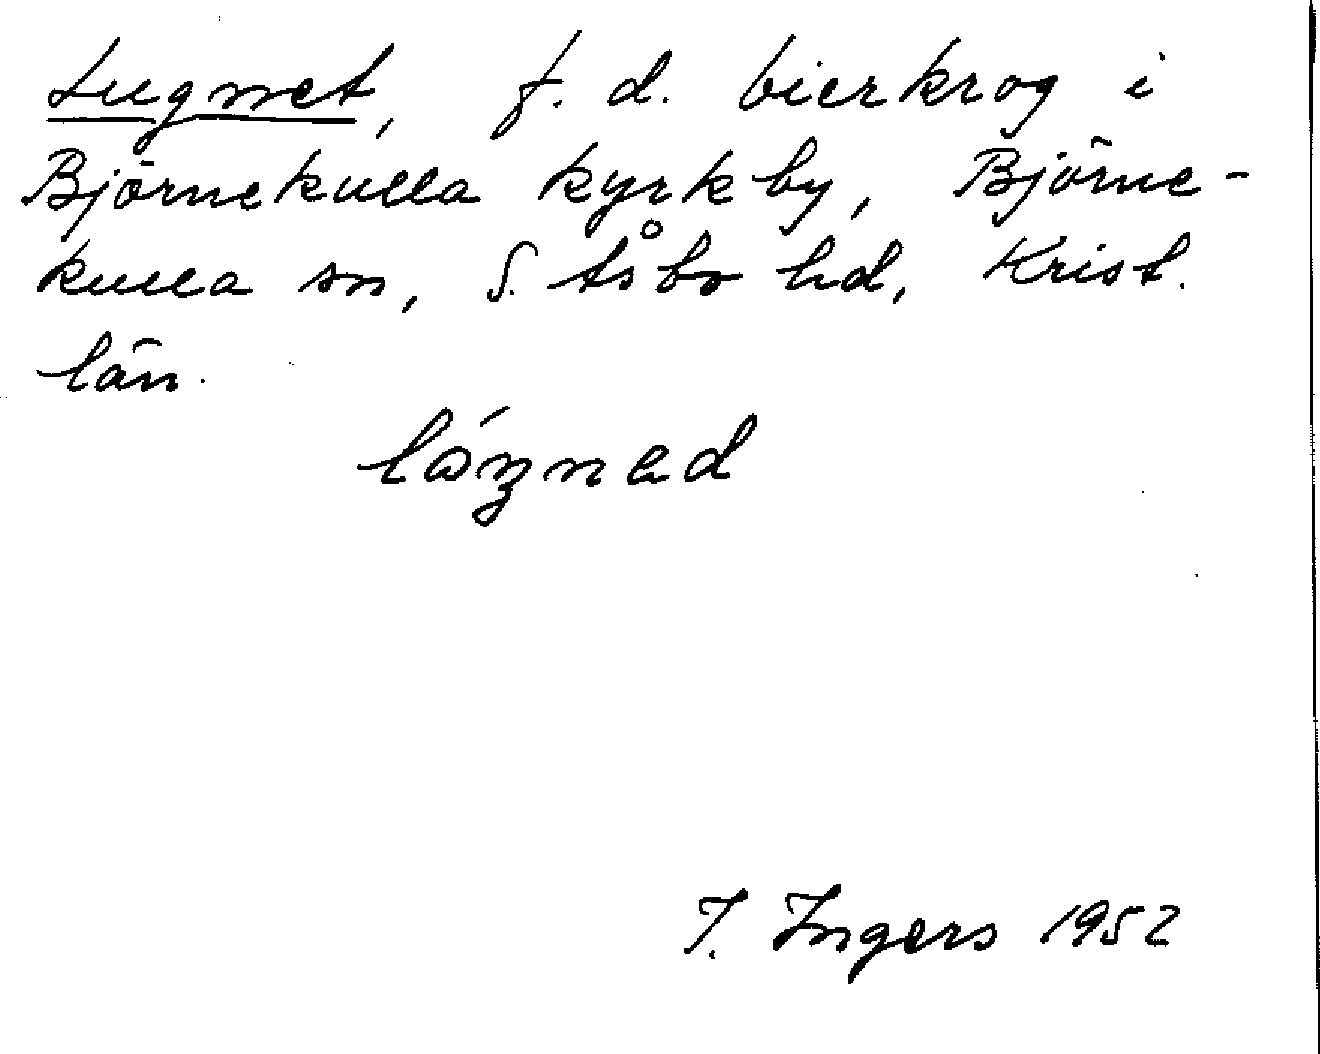 Lugnet, f. d. bierkrog i
Björnekulla kyrkby, Björne-
kulla sn, S. Åsbo hd, Krist.
län.
I. Ingers 1952